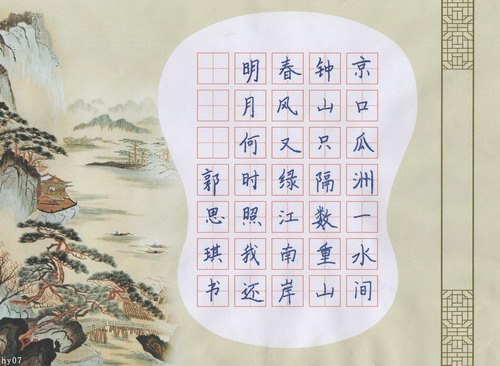 京口瓜洲一水间
钟山只隔数重山
春风又绿江南岸
明月何时照我还
郭思琪书
hy07